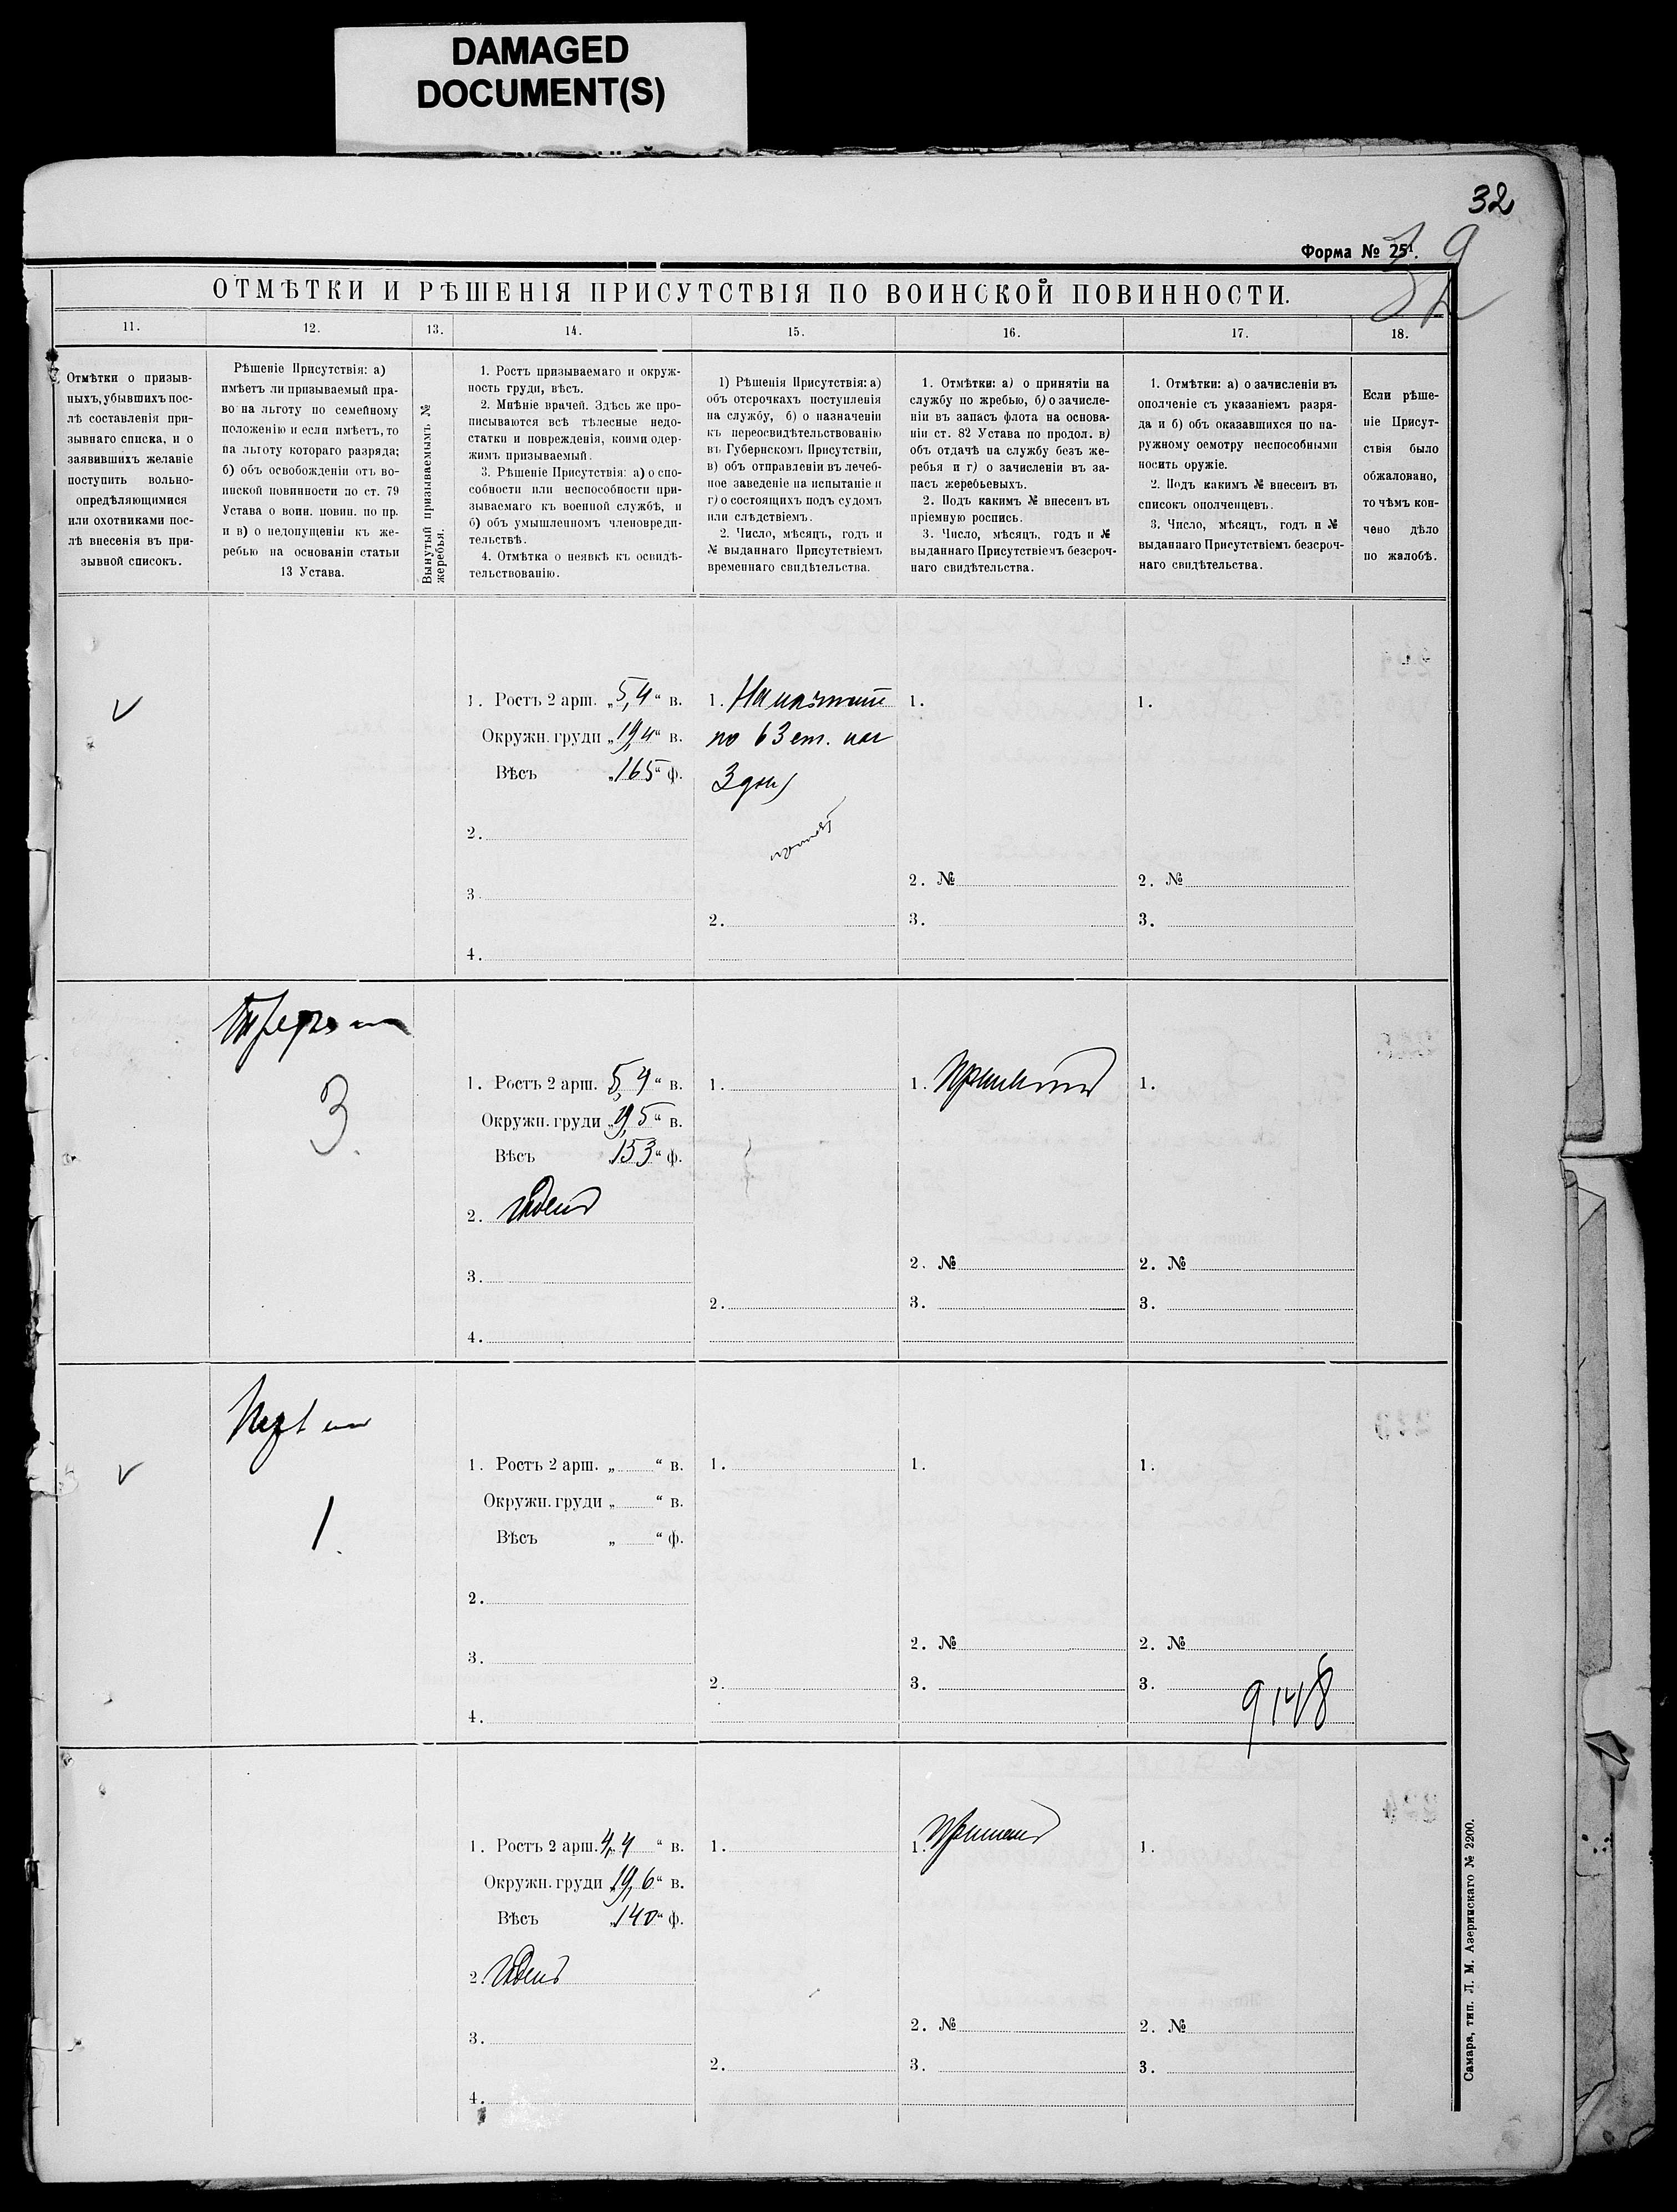 DAMAGED
DOCUMENT(S)
32
Форма № 25¹.
ОТМѢТКИ И РѢШЕНІЯ ПРИСУТСТВІЯ ПО ВОИНСКОЙ ПОВИННОСТИ.
11.
12.
13.
14.
15.
16.
17.
18.
Отмѣтки о призыв-
ныхъ, убывшихъ пос-
лѣ составленія при-
зывнаго списка, и о
заявившихъ желаніе
поступить вольно-
опредѣляющимися
или охотниками пос-
лѣ внесенія въ при-
зывной списокъ.
Рѣшеніе Присутствія: а)
имѣетъ ли призываемый пра-
во на льготу по семейному
положенію и если имѣетъ, то
на льготу котораго разряда;
б) объ освобожденіи отъ во-
инской повинности по ст. 79
Устава о воин. повин. по пр.
и в) о недопущеніи къ же-
ребью на основаніи статьи
13 Устава.
Вынутый призываемымъ №
жеребья.
1. Ростъ призываемаго и окруж-
ность груди, вѣсъ.
2. Мнѣніе врачей. Здѣсь же про-
писываются всѣ тѣлесные недо-
статки и поврежденія, коими одер-
жимъ призываемый.
3. Рѣшеніе Присутствія: а) о спо-
собности или неспособности при-
зываемаго къ военной службѣ, и
б) объ умышленномъ членовреди-
тельствѣ.
4. Отмѣтка о неявкѣ къ освидѣ-
тельствованію.
1) Рѣшенія Присутствія: а)
объ отсрочкахъ поступленія
на службу, б) о назначеніи
къ переосвидѣтельствованію
въ Губернскомъ Присутствіи,
в) объ отправленіи въ лечеб-
ное заведеніе на испытаніе и
г) о состоящихъ подъ судомъ
или слѣдствіемъ.
2. Число, мѣсяцъ, годъ и
№ выданнаго Присутствіемъ
временнаго свидѣтельства.
1. Отмѣтки: а) о принятіи на
службу по жребью, б) о зачисле-
ніи въ запасъ флота на основа-
ніи ст. 82 Устава по продол. в)
объ отдачѣ на службу безъ же-
ребья и г) о зачисленіи въ за-
пасъ жеребьевыхъ.
2. Подъ какимъ № внесенъ въ
пріемную роспись.
3. Число, мѣсяцъ, годъ и №
выданнаго Присутствіемъ безсроч-
наго свидѣтельства.
1. Отмѣтки: а) о зачисленіи въ
ополченіе съ указаніемъ разря-
да и б) объ оказавшихся по на-
ружному осмотру неспособными
носить оружіе.
2. Подъ какимъ № внесенъ въ
списокъ ополченцевъ.
3. Число, мѣсяцъ, годъ и №
выданнаго Присутствіемъ безсроч-
наго свидѣтельства.
Если рѣше-
ніе Присут-
ствія было
обжаловано,
то чѣмъ кон-
чено дѣло
по жалобѣ.
1. Ростъ 2 арш. „5,4“ в.
Окружн. груди „19,4“ в.
Вѣсъ „165“ ф.
2.
3.
4.
1.
по 63 ст. на
3 дня
2.
1.
2. №
3.
1.
2. №
3.
3.
1. Ростъ 2 арш. 5,4“ в.
Окружн. груди „19,5“ в.
Вѣсъ „153“ ф.
2. Годенъ
3.
4.
1.
2.
1. Принятъ
2. №
3.
1.
2. №
3.
1.
1. Ростъ 2 арш. „ “ в.
Окружн. груди „ “ в.
Вѣсъ „ “ ф.
2.
3.
4.
1.
2.
1.
2. №
3.
1.
2. №
3.
9148
1. Ростъ 2 арш. 4,4 “ в.
Окружн. груди „19,6“ в.
Вѣсъ „140“ ф.
2. Годенъ
3.
4.
1.
2.
1. Принятъ
2. №
3.
1.
2. №
3.
Самара, тип. Л. М. Азеринскаго № 2200.